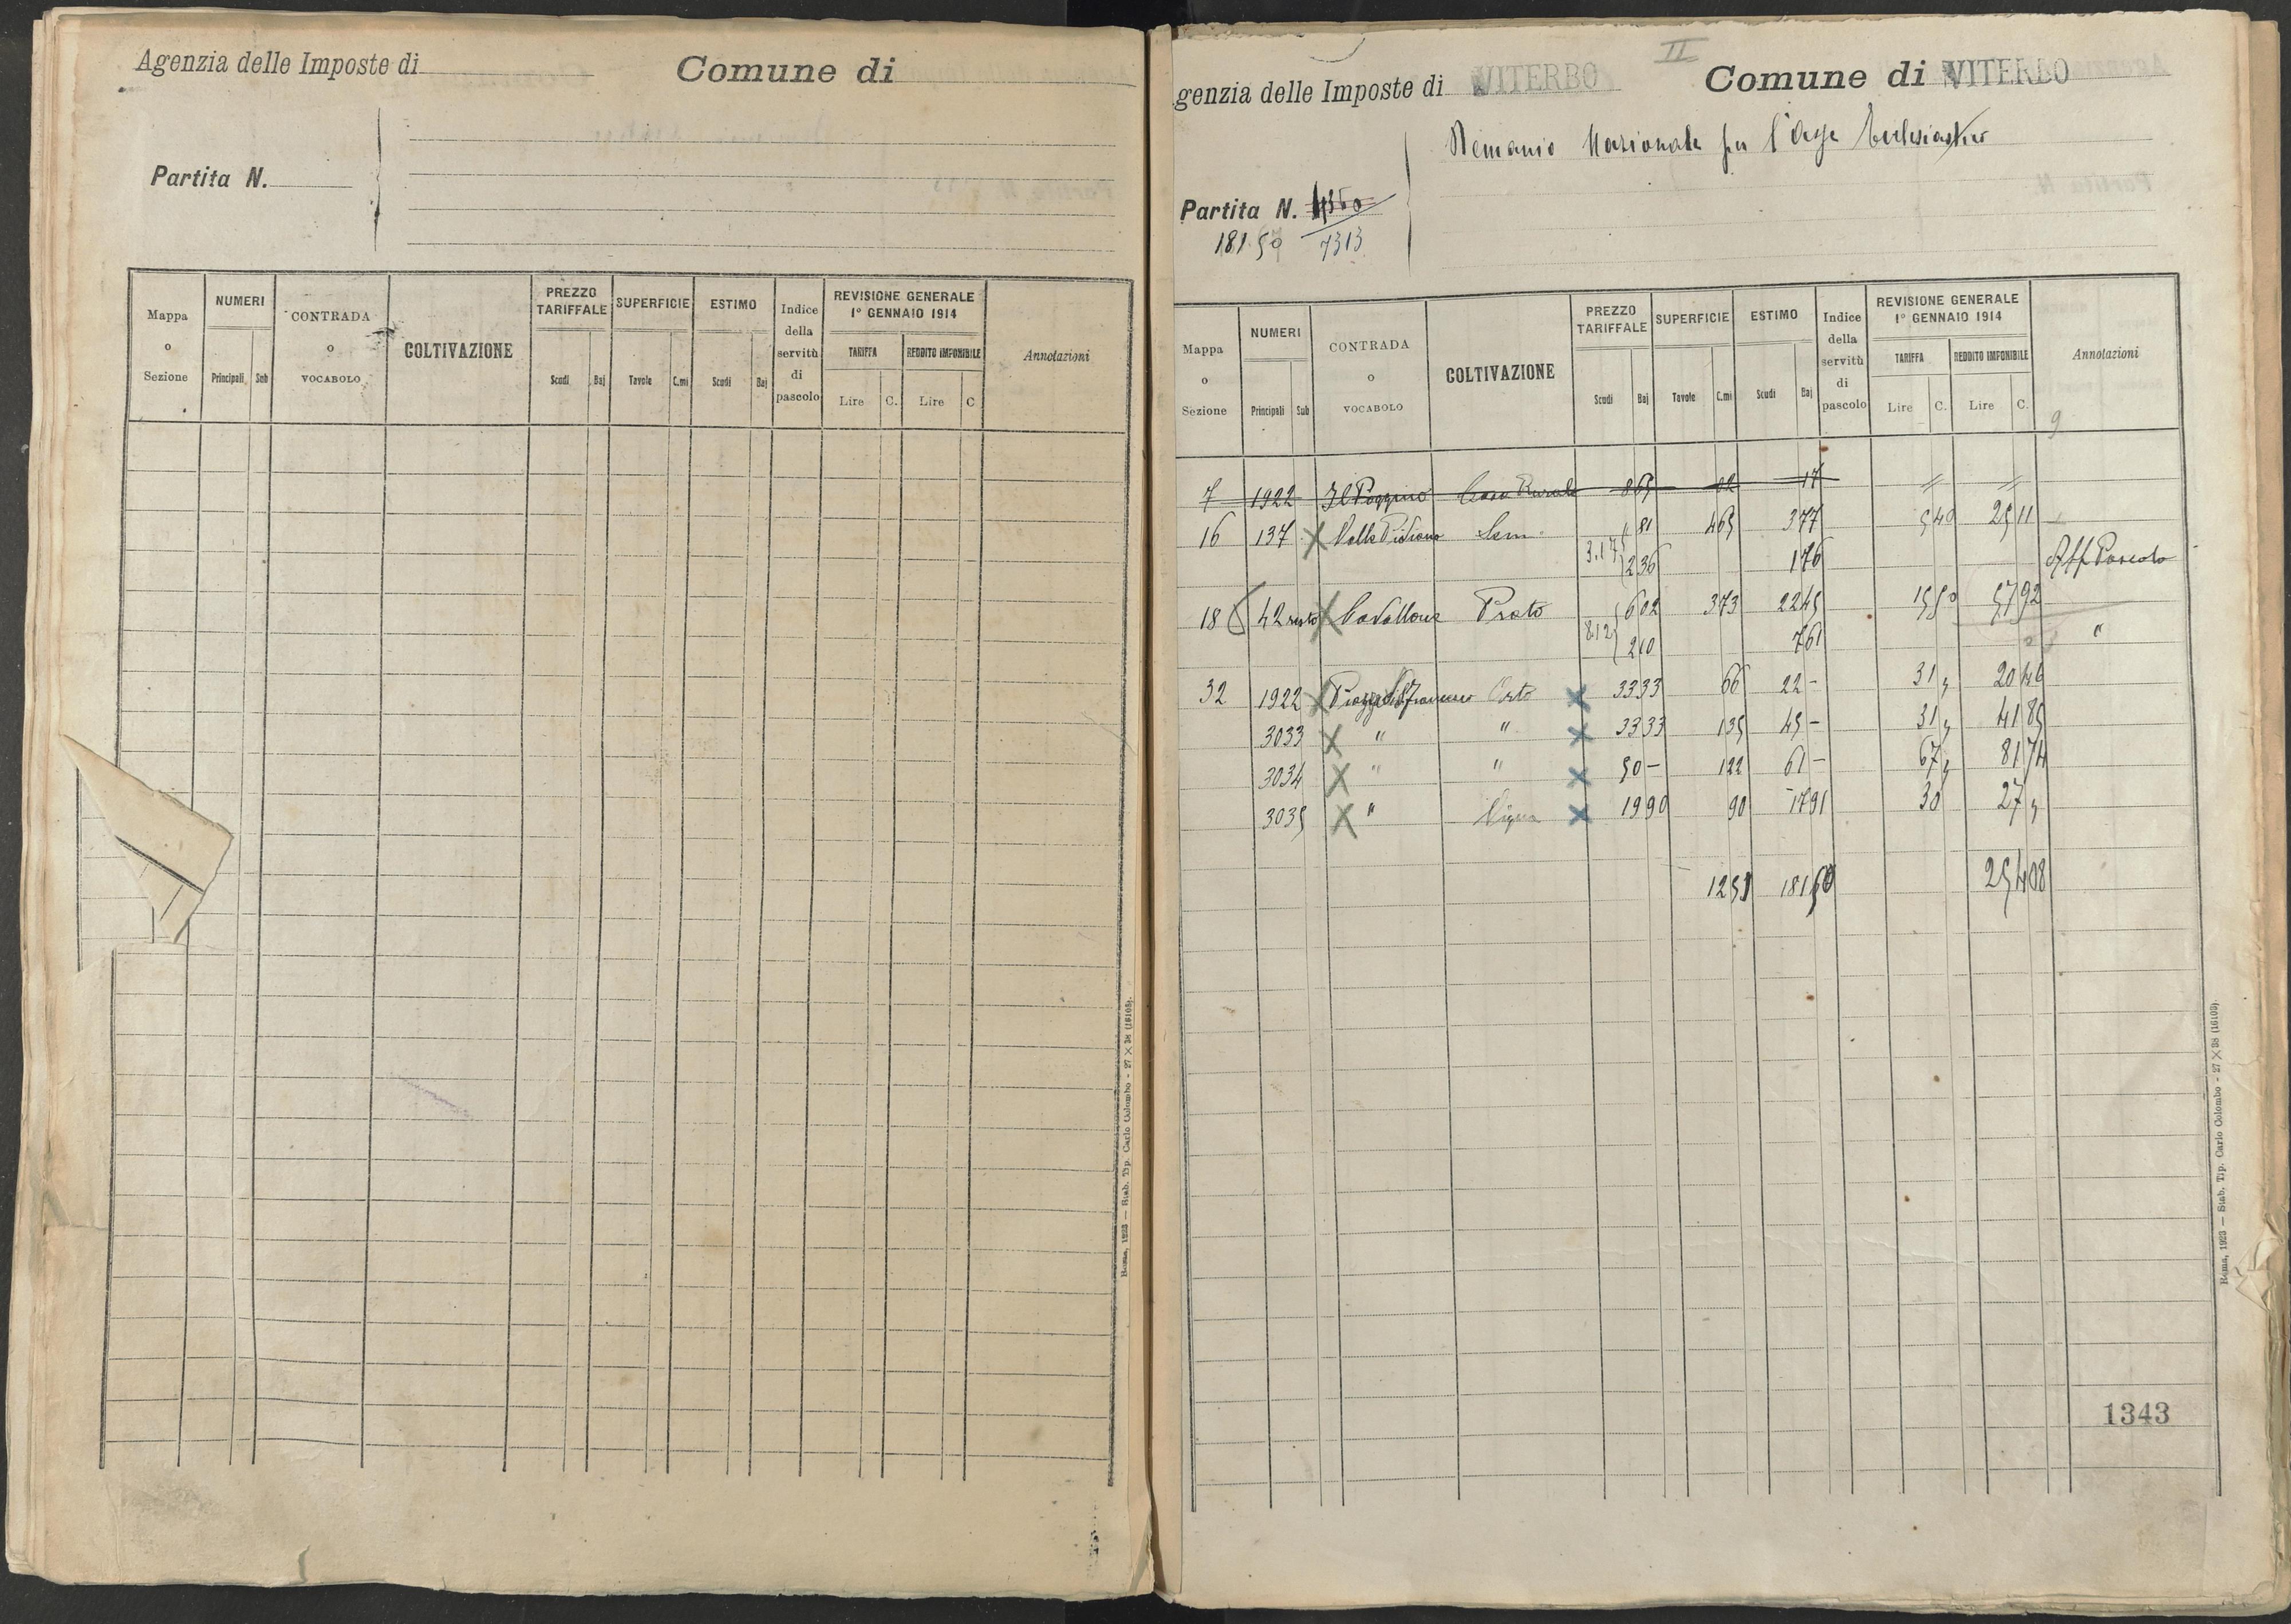 Agenzia delle Imposte di
Comune di
Partita N.
Mappa o Sezione
NUMERI
Principali Sub
CONTRADA o VOCABOLO
COLTIVAZIONE
PREZZO TARIFFALE
Scudi Baj
SUPERFICIE
Tavole C.mi
ESTIMO
Scudi Baj
Indice della servitù di pascolo
REVISIONE GENERALE 1° GENNAIO 1914
TARIFFA
Lire C.
REDDITO IMPONIBILE
Lire C
Annotazioni
Roma, 1923 — Stab. Tip. Carlo Colombo - 27 X 38 (16103).
II
genzia delle Imposte di VITERBO
Comune di VITERBO
Demanio Nazionale per l'Asse Ecclesiastico
Partita N. 4360
181.50 7313
Mappa o Sezione
NUMERI
Principali Sub
CONTRADA o VOCABOLO
COLTIVAZIONE
PREZZO TARIFFALE
Scudi Baj
SUPERFICIE
Tavole C.mi
ESTIMO
Scudi Baj
Indice della servitù di pascolo
REVISIONE GENERALE 1° GENNAIO 1914
TARIFFA
Lire C.
REDDITO IMPONIBILE
Lire C.
Annotazioni
9
7 1922 Il Poggino Casa Rurale 865 02 17 " "
16 137 X Valle Pidiana Sem. " 81 465 377 540 2511
3.17 236 176 Aff Pascolo
18 42 resto X Cavallone Prato 602 373 2245 1550 5792
8.12 210 761 "
32 1922 X Piazza S. Francesco Orto X 3333 66 22 - 31 " 2046
3033 X " " X 3333 135 45 - 31 " 4185
3034 X " " X 50 - 122 61 - 67 " 8174
3035 X " Vigna X 1990 90 1791 30 27 "
1251 18150 25408
Roma, 1923 — Stab. Tip. Carlo Colombo - 27 X 38 (16103).
1343